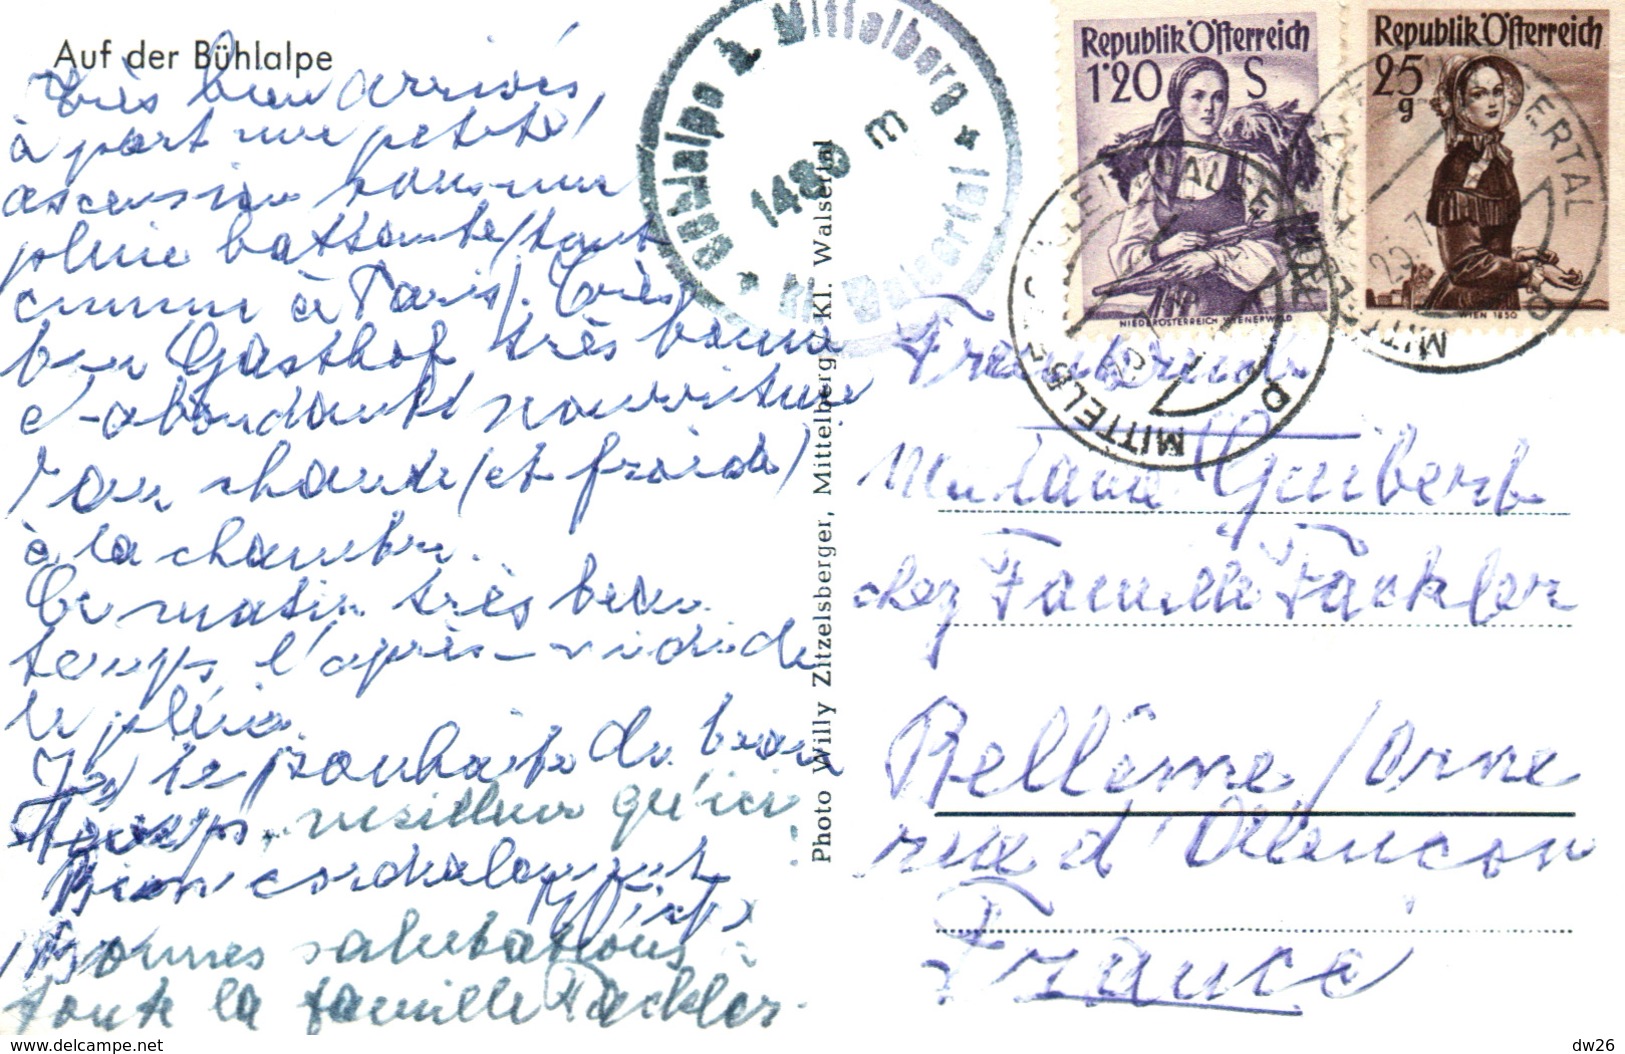 Auf der Bühlalpe
Très bien arrivés,
à part une petite
ascension sous une
pluie battante (tout
comme à Paris). Très
bon Gasthof très bonne
et abondante nourriture
eau chaude (et froide)
à la chambre.
Ce matin très beau
temps l'après-midi de
la pluie.
Je te souhaite du beau
Temps, meilleur qu'ici
Bien cordialement
Bonnes salutations à
toute la famille Fackler.
Bühlalpe b. Mittelberg
kl. Walsertal
m
Photo Willy Zitzelsberger, Mittelberg Kl. Walsertal
Republik Österreich
1'20 S
NIEDERÖSTERREICH WIENERWALD
Republik Österreich
25 g
WIEN 1850
MITTELBERG
Frankreich
Madame Guibert
chez Famille Fackler
Bellême / Orne
rue d'Alencon
France
www.delcampe.net
dw26